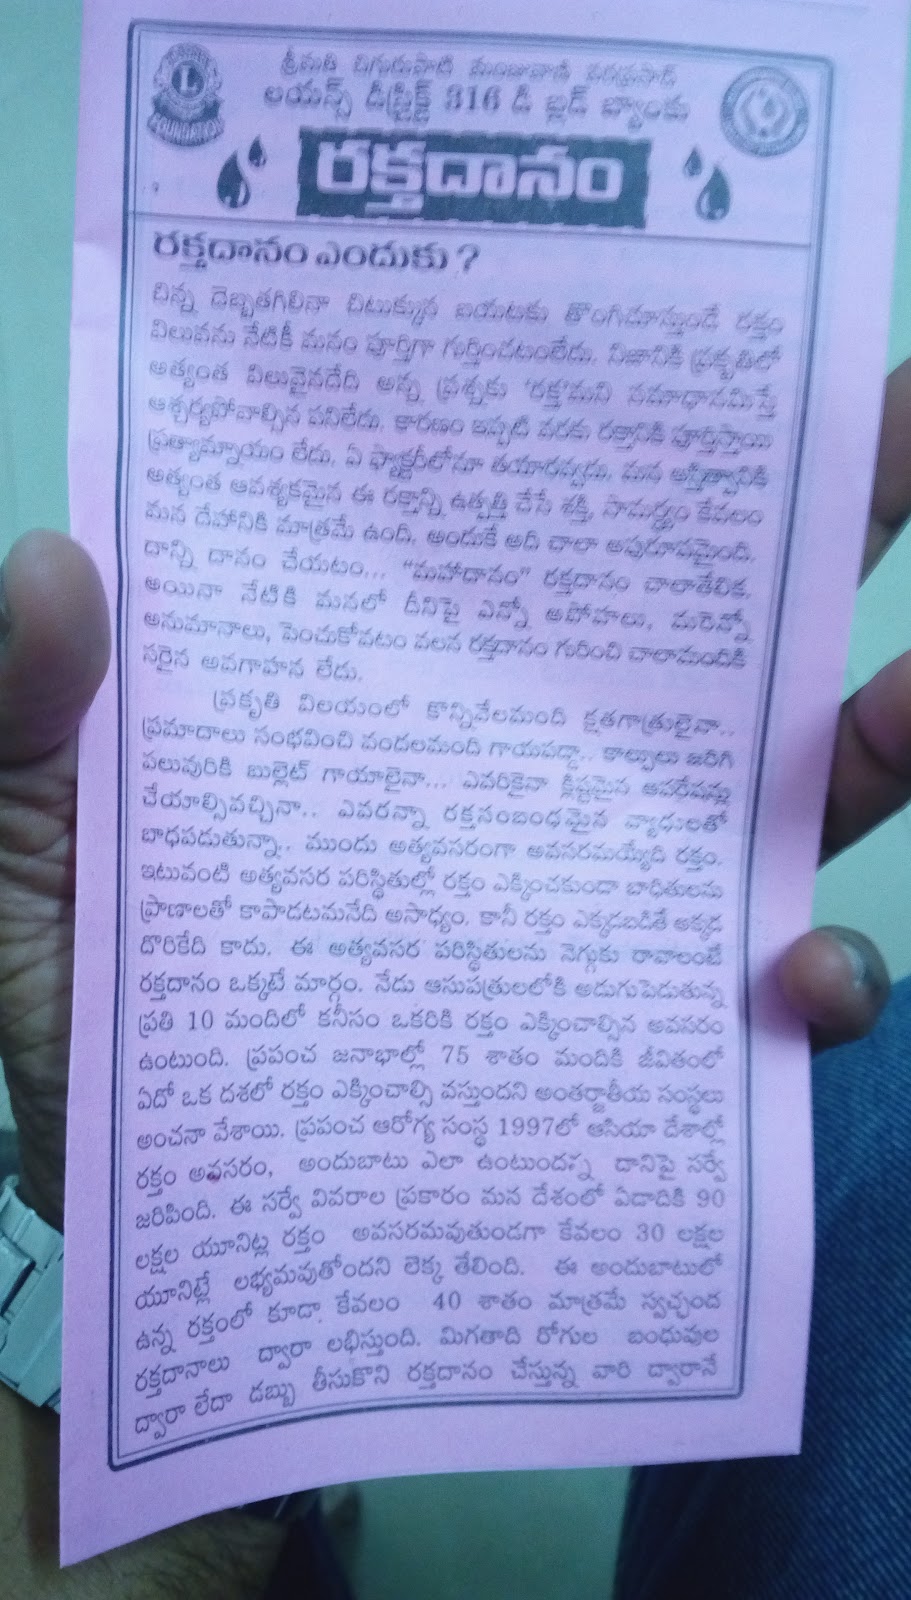 శ్రీమతి చిగురుపాటి మంజువాణి వరప్రసాద్
లయన్స్ డిస్ట్రిక్ట్ 316 డి బ్లడ్ బ్యాంకు
FOUNDATION
రక్తదానం
రక్తదానం ఎందుకు ?
చిన్న దెబ్బతగిలినా చిటుక్కున బయటకు తొంగిచూస్తుండే రక్తం
విలువను నేటికీ మనం పూర్తిగా గుర్తించటంలేదు. నిజానికి ప్రకృతిలో
అత్యంత విలువైనదేది అన్న ప్రశ్నకు 'రక్త'మని సమాధానమిస్తే
ఆశ్చర్యపోవాల్సిన పనిలేదు. కారణం ఇప్పటి వరకు రక్తానికి పూర్తిస్తాయి
ప్రత్యామ్నాయం లేదు. ఏ ఫ్యాక్టరీలోనూ తయారవ్వదు. మన అస్తిత్వానికి
అత్యంత ఆవశ్యకమైన ఈ రక్తాన్ని ఉత్పత్తి చేసే శక్తి, సామర్థ్యం కేవలం
మన దేహానికి మాత్రమే ఉంది. అందుకే అది చాలా అపురూపమైంది.
దాన్ని దానం చేయటం... "మహాదానం" రక్తదానం చాలాతేలిక.
అయినా నేటికి మనలో దీనిపై ఎన్నో అపోహలు, మరెన్నో
అనుమానాలు, పెంచుకోవటం వలన రక్తదానం గురించి చాలామందికి
సరైన అవగాహన లేదు.
ప్రకృతి విలయంలో కొన్నివేలమంది క్షతగాత్రులైనా..
ప్రమాదాలు సంభవించి వందలమంది గాయపడ్డా.. కాల్పులు జరిగి
పలువురికి బుల్లెట్ గాయాలైనా... ఎవరికైనా క్లిష్టమైన ఆపరేషన్లు
చేయాల్సివచ్చినా.. ఎవరన్నా రక్తసంబంధమైన వ్యాధులతో
బాధపడుతున్నా.. ముందు అత్యవసరంగా అవసరమయ్యేది రక్తం.
ఇటువంటి అత్యవసర పరిస్థితుల్లో రక్తం ఎక్కించకుండా బాధితులను
ప్రాణాలతో కాపాడటమనేది అసాధ్యం. కానీ రక్తం ఎక్కడబడితే అక్కడ
దొరికేది కాదు. ఈ అత్యవసర పరిస్థితులను నెగ్గుకు రావాలంటే
రక్తదానం ఒక్కటే మార్గం. నేడు ఆసుపత్రులలోకి అడుగుపెడుతున్న
ప్రతి 10 మందిలో కనీసం ఒకరికి రక్తం ఎక్కించాల్సిన అవసరం
ఉంటుంది. ప్రపంచ జనాభాల్లో 75 శాతం మందికి జీవితంలో
ఏదో ఒక దశలో రక్తం ఎక్కించాల్సి వస్తుందని అంతర్జాతీయ సంస్థలు
అంచనా వేశాయి. ప్రపంచ ఆరోగ్య సంస్థ 1997లో ఆసియా దేశాల్లో
రక్తం అవసరం, అందుబాటు ఎలా ఉంటుందన్న దానిపై సర్వే
జరిపింది. ఈ సర్వే వివరాల ప్రకారం మన దేశంలో ఏడాదికి 90
లక్షల యూనిట్ల రక్తం అవసరమవుతుండగా కేవలం 30 లక్షల
యూనిట్లే లభ్యమవుతోందని లెక్క తేలింది. ఈ అందుబాటులో
ఉన్న రక్తంలో కూడా కేవలం 40 శాతం మాత్రమే స్వచ్ఛంద
రక్తదానాలు ద్వారా లభిస్తుంది. మిగతాది రోగుల బంధువుల
ద్వారా లేదా డబ్బు తీసుకొని రక్తదానం చేస్తున్న వారి ద్వారానే